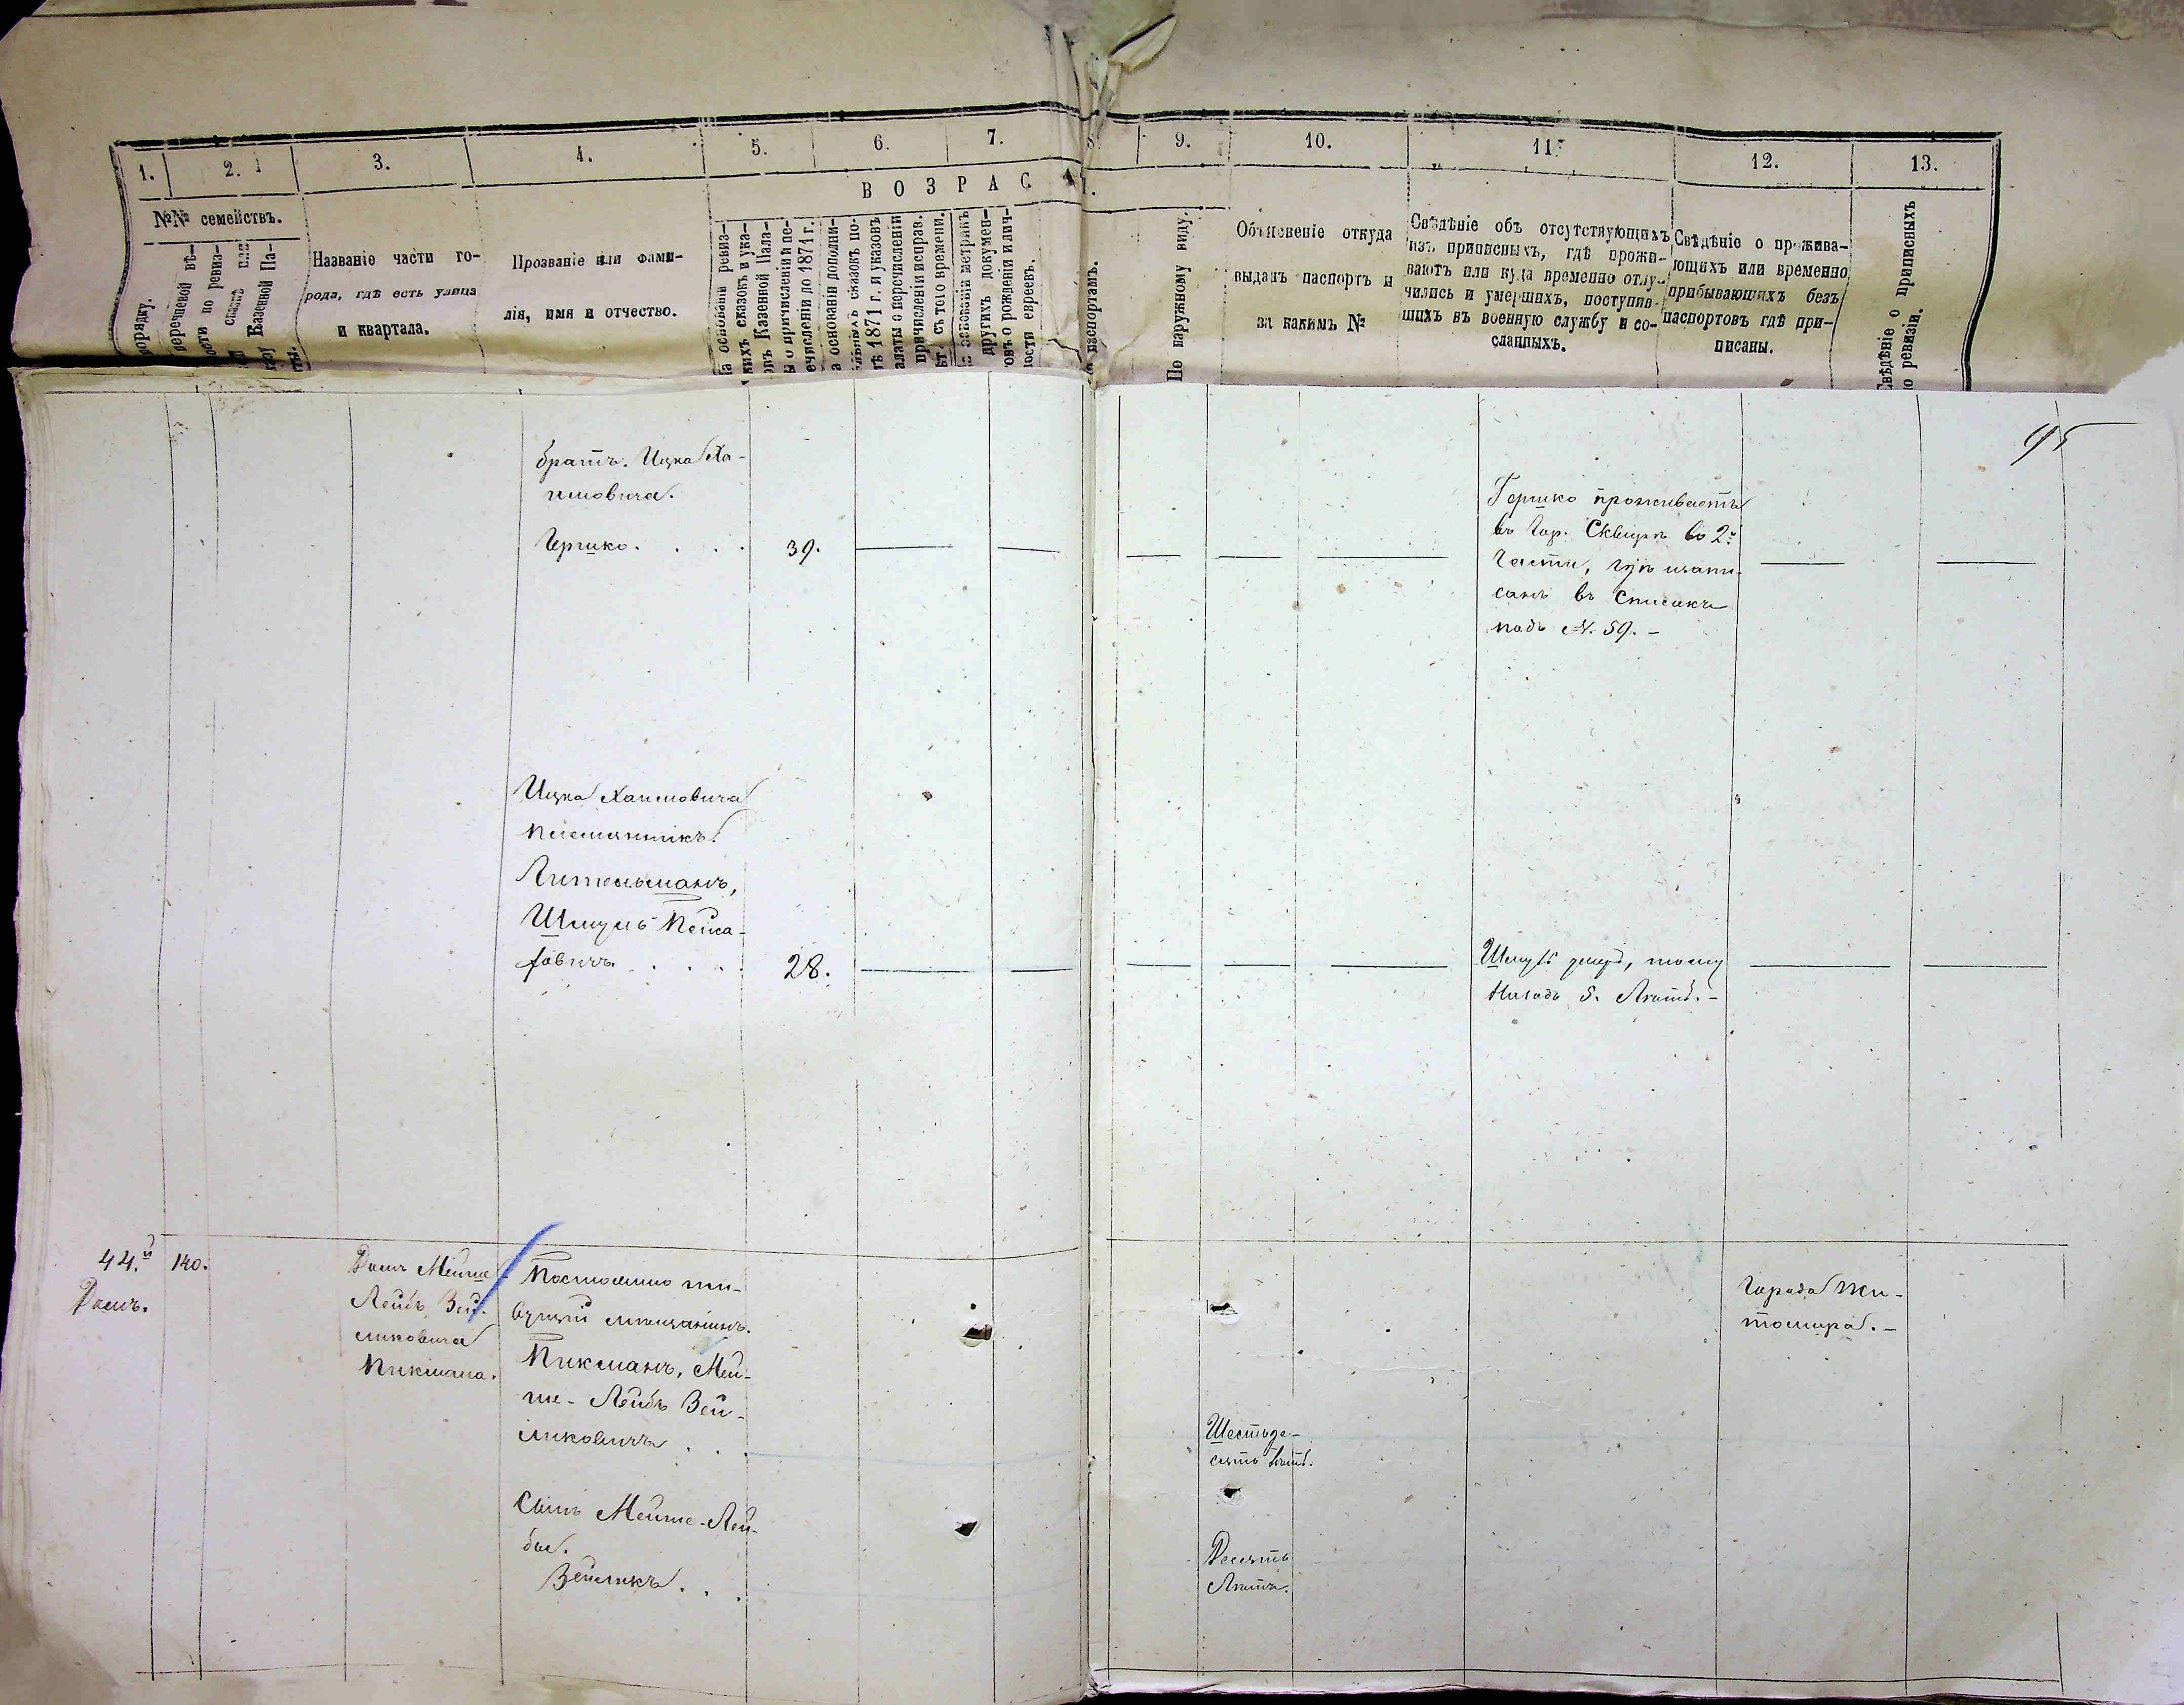 1.
2.
3.
4.
5.
6.
7.
8.
9.
10.
11.
12.
13.
В О З Р А С Т.
№№ семействъ.
порядку.
перечневой вѣ-
ости по ревиз-
Казенной Па-
Названіе части го-
рода, гдѣ есть улица
и квартала.
Прозваніе или фами-
лія, имя и отчество.
На основаніи ревиз-
скихъ сказокъ и ука-
зовъ Казенной Пала-
ты о причисленіи и пе-
речисленіи до 1871 г.
На основаніи дополни-
тельныхъ сказокъ по-
слѣ 1871 г. и указовъ
палаты о перечисленіи
причисленіи исправ.
лѣтъ съ того времени.
На основаніи метрикъ
другихъ докумен-
товъ о рожденіи и лич-
ности евреевъ.
По паспортамъ.
По наружному виду.
Объясненіе откуда
выданъ паспортъ и
за какимъ №
Свѣдѣніе объ отсутствующихъ
изъ приписныхъ, гдѣ прожи-
ваютъ или куда временно отлу-
чились и умершихъ, поступив-
шихъ въ военную службу и со-
сланныхъ.
Свѣдѣніе о прожива-
ющихъ или временно
прибывающихъ безъ
паспортовъ гдѣ при-
писаны.
Свѣдѣніе о приписныхъ
по ревизіи.
95
братъ. Ицка Ха-
имовича.
Гершко. . . . 39.
Гершко проживаетъ
въ Гор. Сквирѣ во 2й
Части, гдѣ и запи-
санъ въ Списокъ
подъ N. 59. -
Ицка Хаимовича
племянникъ.
Лительманъ,
Шмуль Пейса-
ховичъ . . . . 28.
Шмуль умеръ, тому
Назадъ 5. Лѣтъ. -
44.й 140.
Домъ.
Домъ Мейше
Лейбъ Зей-
ликовича
Пикмана.
Постоянно жи-
вущій мѣщанинъ.
Пикманъ, Мей-
ше - Лейбъ Зей-
ликовичъ . . .
Шестьде-
сятъ Лѣтъ.
Города Жи-
томира. -
Сынъ Мейше-Лей-
бы.
Зейликъ . . .
Десять
Лѣтъ.